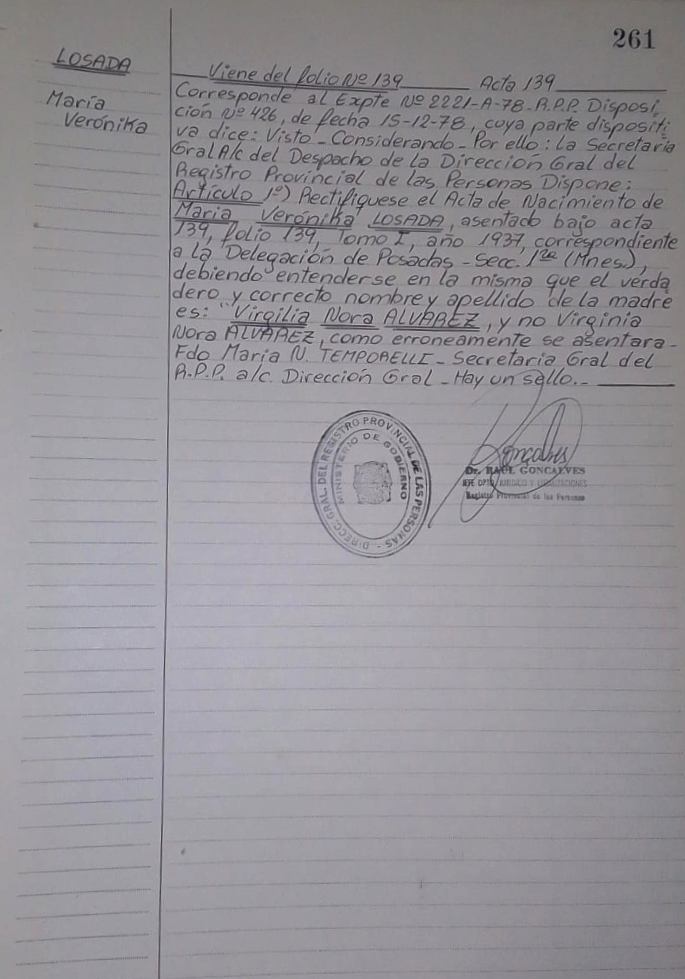 261
LOSADA
María
Verónika
Viene del folio Nº 139 Acta 139
Corresponde al Expte Nº 2221-A-78-R.P.P. Disposi
ción Nº 426, de fecha 15-12-78, cuya parte dispositi
va dice: Visto - Considerando - Por ello: La Secretaria
Gral A/c del Despacho de la Dirección Gral del
Registro Provincial de las Personas Dispone:
Artículo 1º) Rectifíquese el Acta de Nacimiento de
María Verónika LOSADA, asentado bajo acta
139, folio 139, Tomo I, año 1937, correspondiente
a la Delegación de Posadas - Secc. 1ra (Mnes.),
debiendo entenderse en la misma que el verda
dero y correcto nombre y apellido de la madre
es: "Virgilia Nora ALVAREZ, y no Virginia
Nora ALVAREZ, como erroneamente se asentara-
Fdo María N. TEMPORELLI - Secretaria Gral del
R.P.P. a/c. Dirección Gral - Hay un sello.-
DIRECC. GRAL. DEL REGISTRO PROVINCIAL DE LAS PERSONAS -
MINISTERIO DE GOBIERNO
Goncalves
Dr. RAUL GONCALVES
JEFE DPTO. JURIDICO Y
Registro Provincial de las Personas